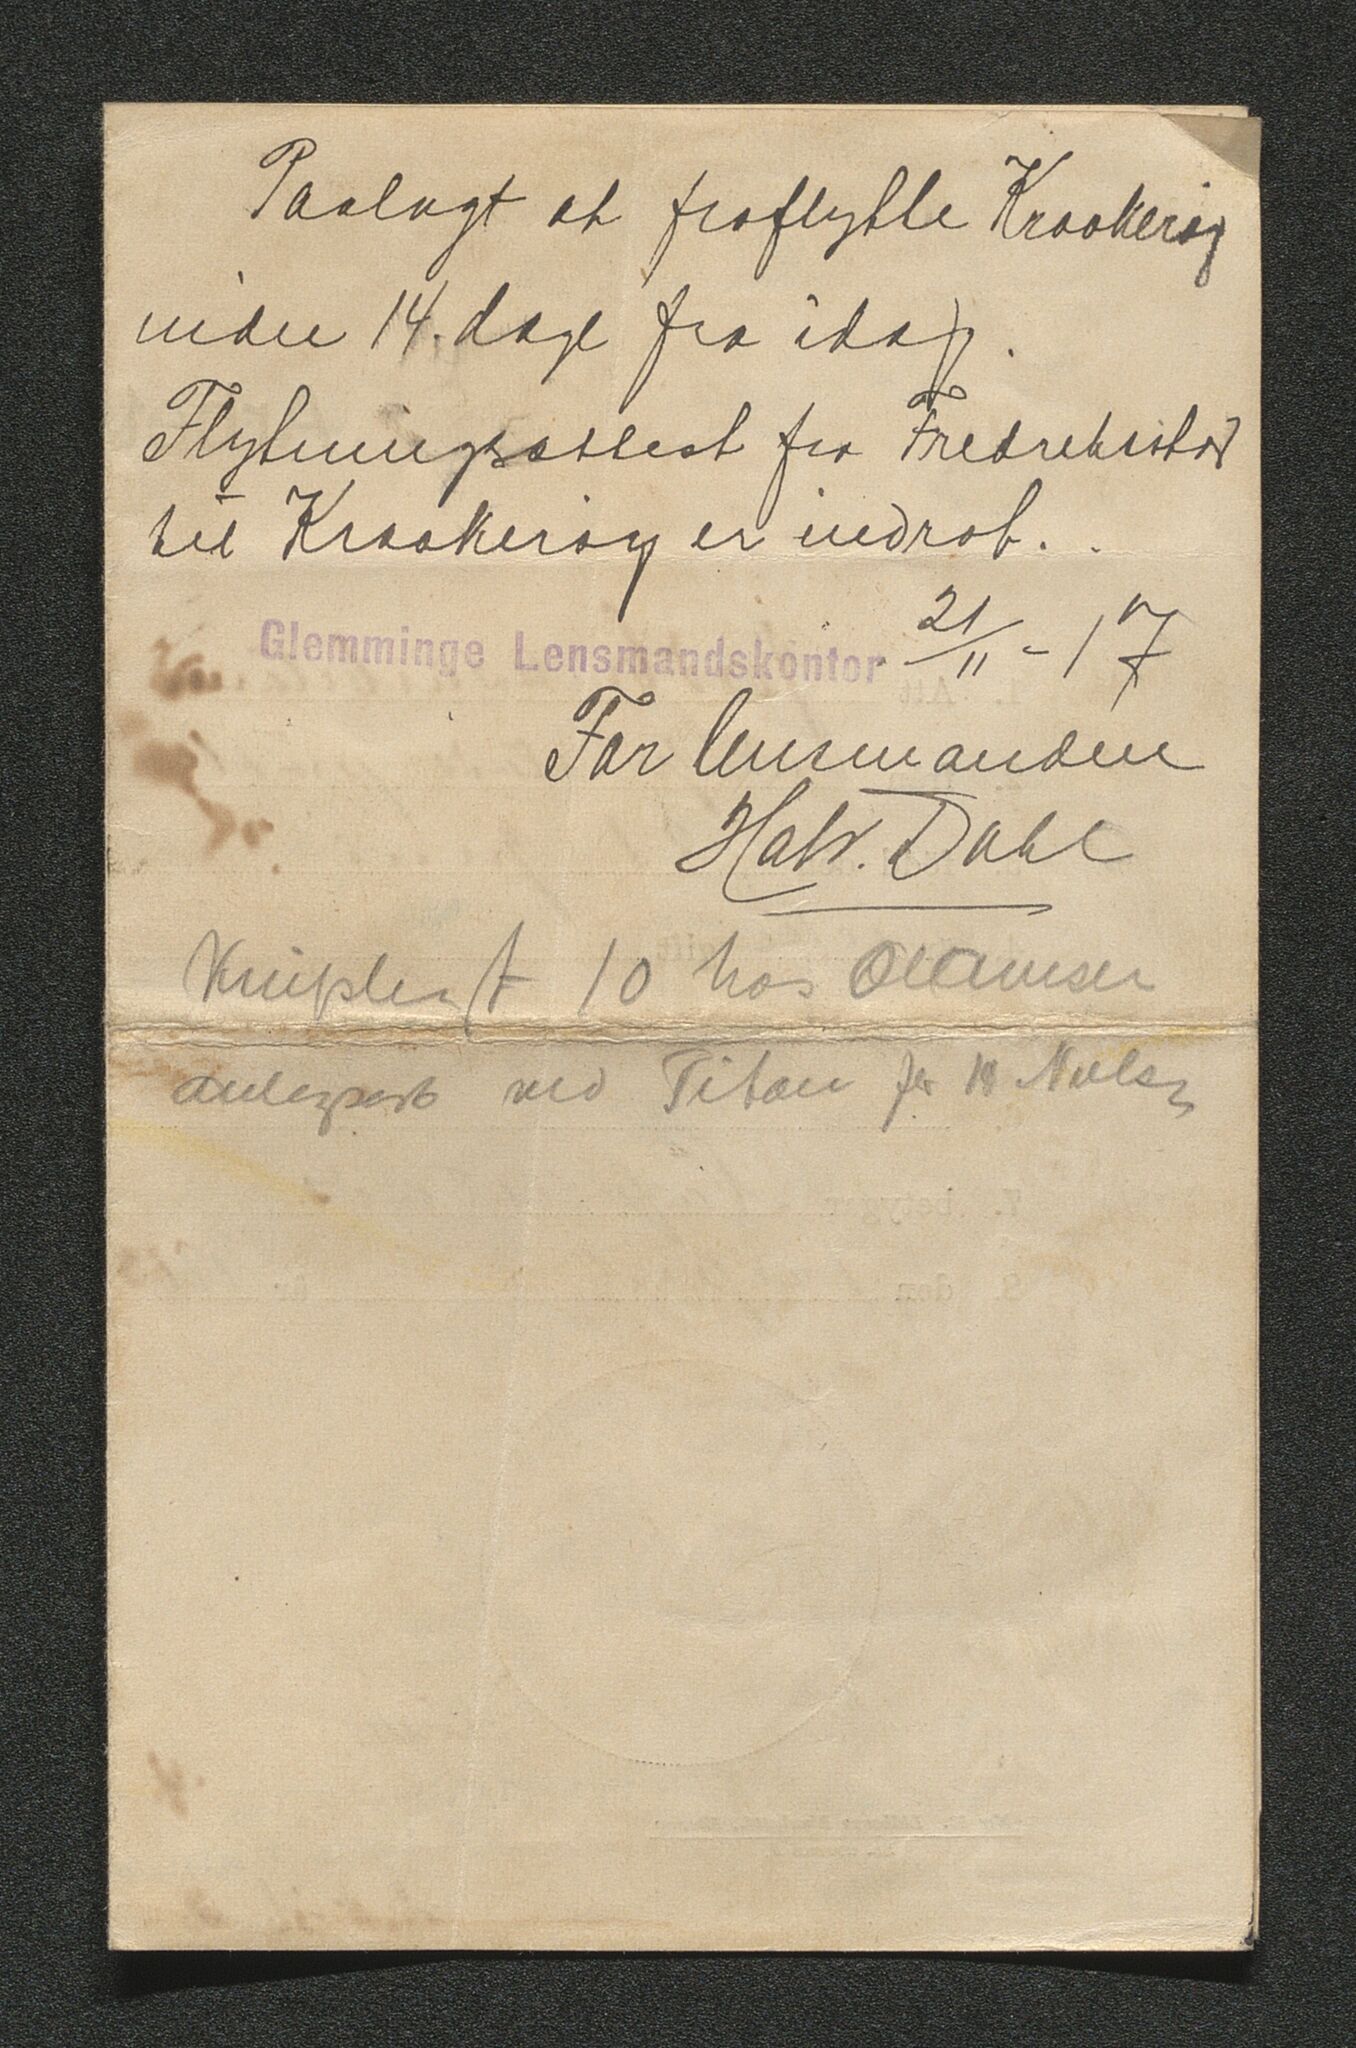 Paalagt at fraflytte Kraakerøy
inden 14. dage fra idag.
Flytningsattest fra Fredrekstad
til Kraakerøy er indrat.
Glemminge Lensmandskontor 21/11-17
For lensmanden
Halv. Dahl
10 hos
ved Titan